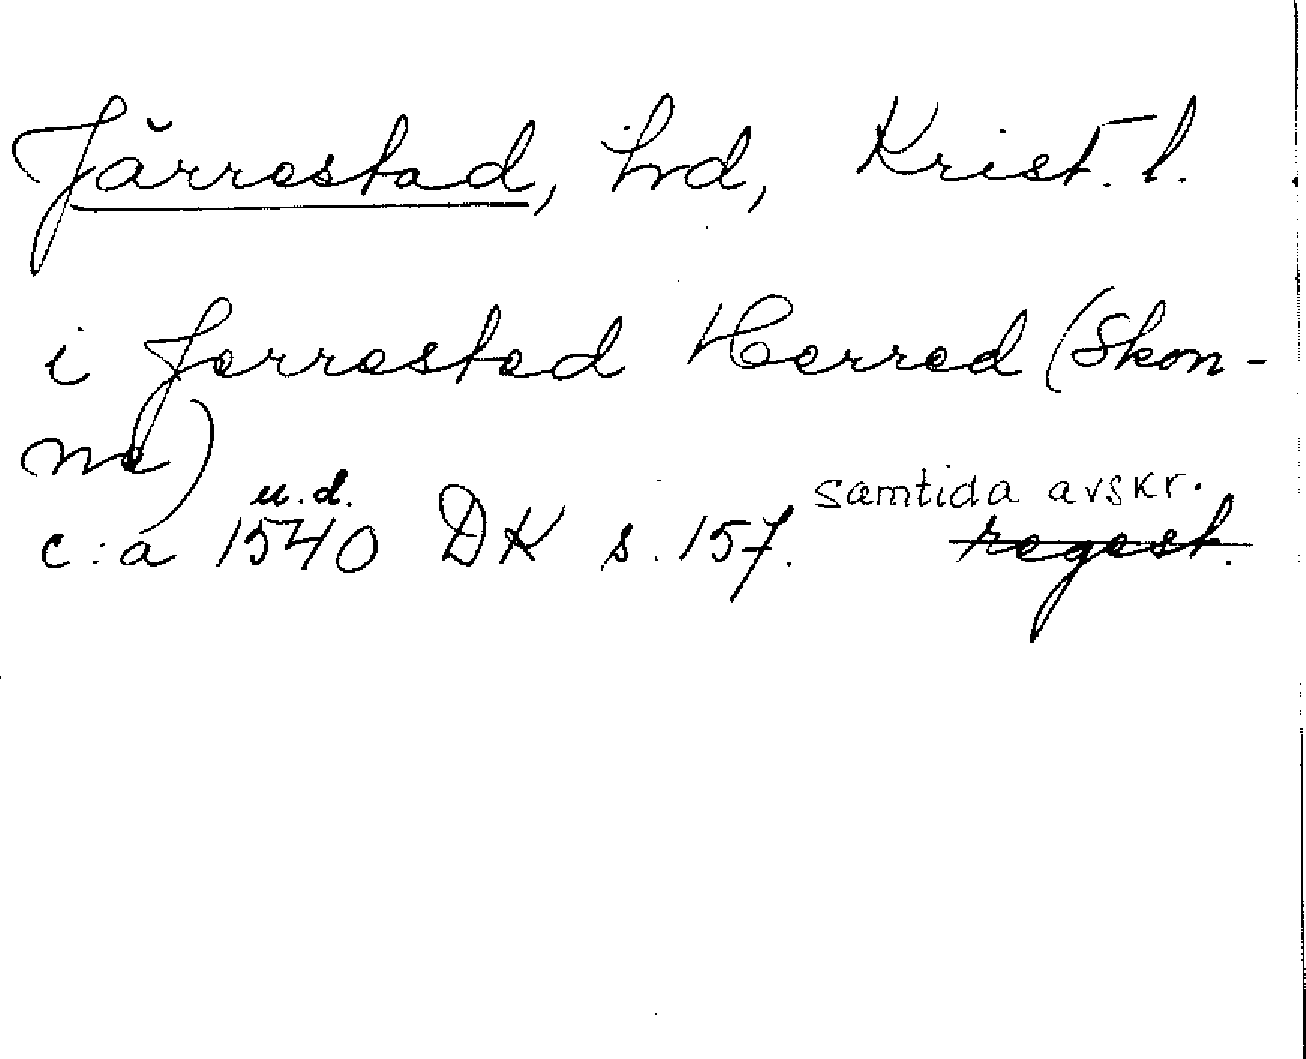 Järrestad, hd, Krist. l.
i Jerrested Herred (Skon-
ne)
u.d. samtida avskr.
c:a 1540 DK s. 157. regest.